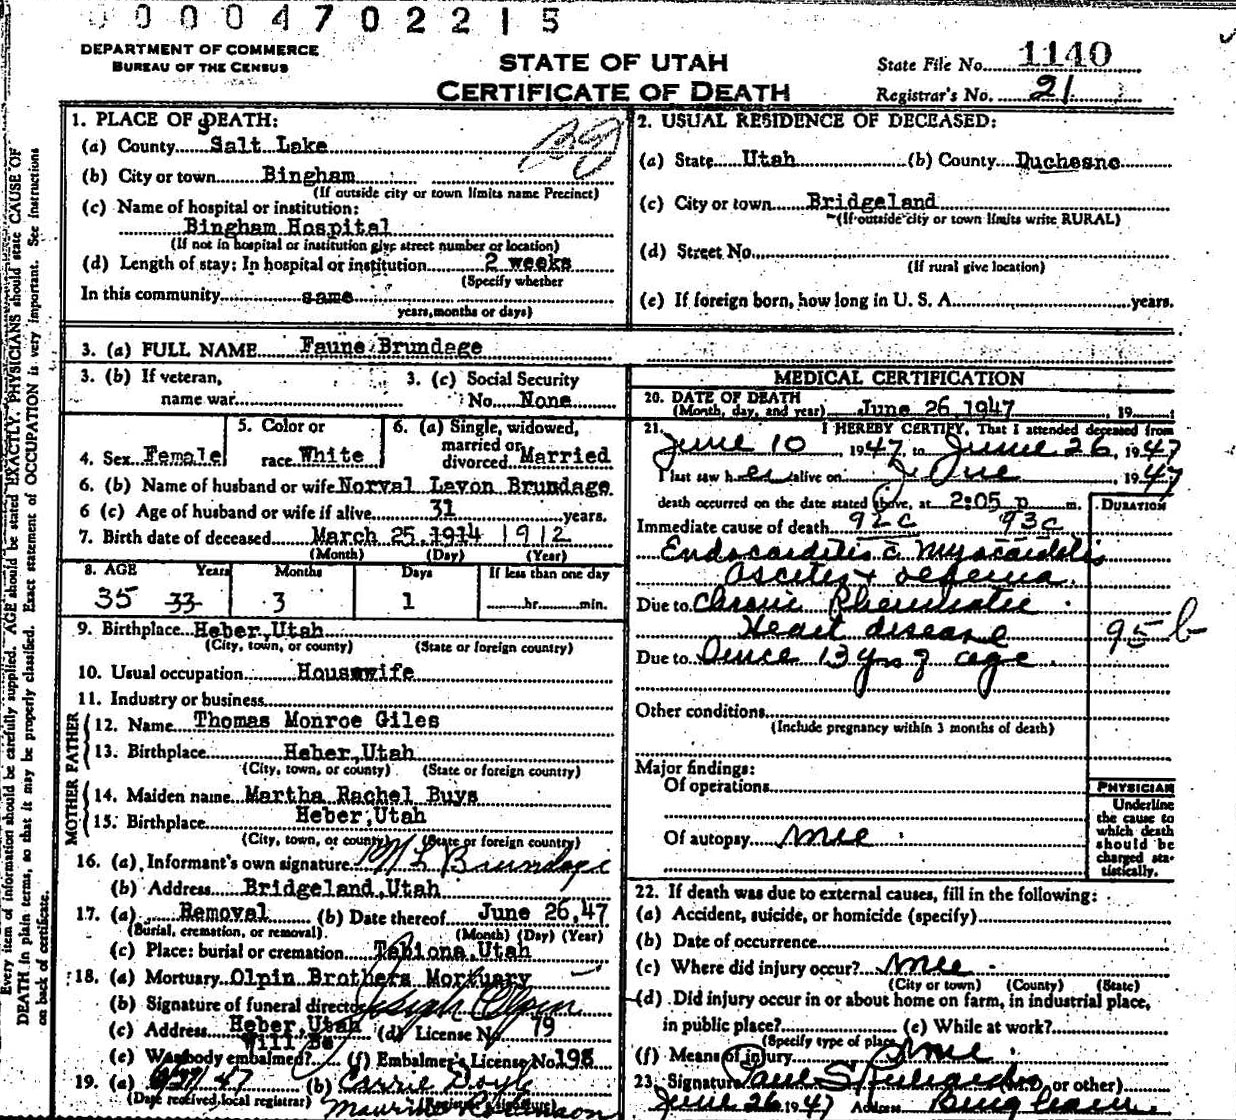 0 0 0 4 7 0 2 2 1 5
DEPARTMENT OF COMMERCE
BUREAU OF THE CENSUS
STATE OF UTAH
CERTIFICATE OF DEATH
State File No. 1140
Registrar's No. 21
Every item of information should be carefully supplied. AGE should be stated EXACTLY. PHYSICIANS should state CAUSE OF
DEATH in plain terms, so that it may be properly classified. Exact statement of OCCUPATION is very important. See instructions
on back of certificate.
1. PLACE OF DEATH:
(a) County Salt Lake
(b) City or town Bingham
(If outside city or town limits name Precinct)
(c) Name of hospital or institution:
Bingham Hospital
(If not in hospital or institution give street number or location)
(d) Length of stay: In hospital or institution 2 weeks
(Specify whether
In this community same
years, months or days)
2. USUAL RESIDENCE OF DECEASED:
(a) State Utah (b) County Duchesne
(c) City or town Bridgeland
(If outside city or town limits write RURAL)
(d) Street No.
(If rural give location)
(e) If foreign born, how long in U. S. A. years.
3. (a) FULL NAME Faune Brundage
3. (b) If veteran,
name war
3. (c) Social Security
No. None
4. Sex Female
5. Color or
race White
6. (a) Single, widowed,
married or
divorced Married
6. (b) Name of husband or wife Norval Lavon Brundage
6 (c) Age of husband or wife if alive 31 years.
7. Birth date of deceased March 25, 1914 1912
(Month) (Day) (Year)
8. AGE Years Months Days If less than one day
35 33 3 1 hr. min.
9. Birthplace Heber, Utah
(City, town, or county) (State or foreign country)
10. Usual occupation Housewife
11. Industry or business
FATHER
12. Name Thomas Monroe Giles
13. Birthplace Heber, Utah
(City, town, or county) (State or foreign country)
MOTHER
14. Maiden name Martha Rachel Buys
15. Birthplace Heber, Utah
(City, town, or county) (State or foreign country)
16. (a) Informant's own signature N L Brundage
(b) Address Bridgeland, Utah
17. (a) Removal (b) Date thereof June 26, 47
(Burial, cremation, or removal) (Month) (Day) (Year)
(c) Place: burial or cremation Tabiona, Utah
18. (a) Mortuary Olpin Brothers Mortuary
(b) Signature of funeral director Olpin
(c) Address Heber, Utah (d) License No. 79
Will Be
(e) Was body embalmed? (f) Embalmer's License No. 198
19. (a) 47 (b) Carrie Doyle
(Date received local registrar)
MEDICAL CERTIFICATION
20. DATE OF DEATH
(Month, day, and year) June 26, 1947, 19
21. I HEREBY CERTIFY, That I attended deceased from
June 10, 1947, to June 26, 1947
I last saw her alive on June, 1947
death occurred on the date stated above, at 2:05 p m.
DURATION
Immediate cause of death 92c 93c
Endocarditis c Myocarditis
Ascites + oedema.
Due to Chronic Rheumatic
Heart disease 95 b
Due to Since 13 yrs of age.
Other conditions
(Include pregnancy within 3 months of death)
Major findings:
Of operations
Of autopsy
PHYSICIAN
Underline
the cause to
which death
should be
charged sta-
tistically.
22. If death was due to external causes, fill in the following:
(a) Accident, suicide, or homicide (specify)
(b) Date of occurrence
(c) Where did injury occur?
(City or town) (County) (State)
(d) Did injury occur in or about home on farm, in industrial place,
in public place? (e) While at work?
(Specify type of place)
(f) Means of injury
23. Signature Paul S or other)
June 26 1947 Address Bingham